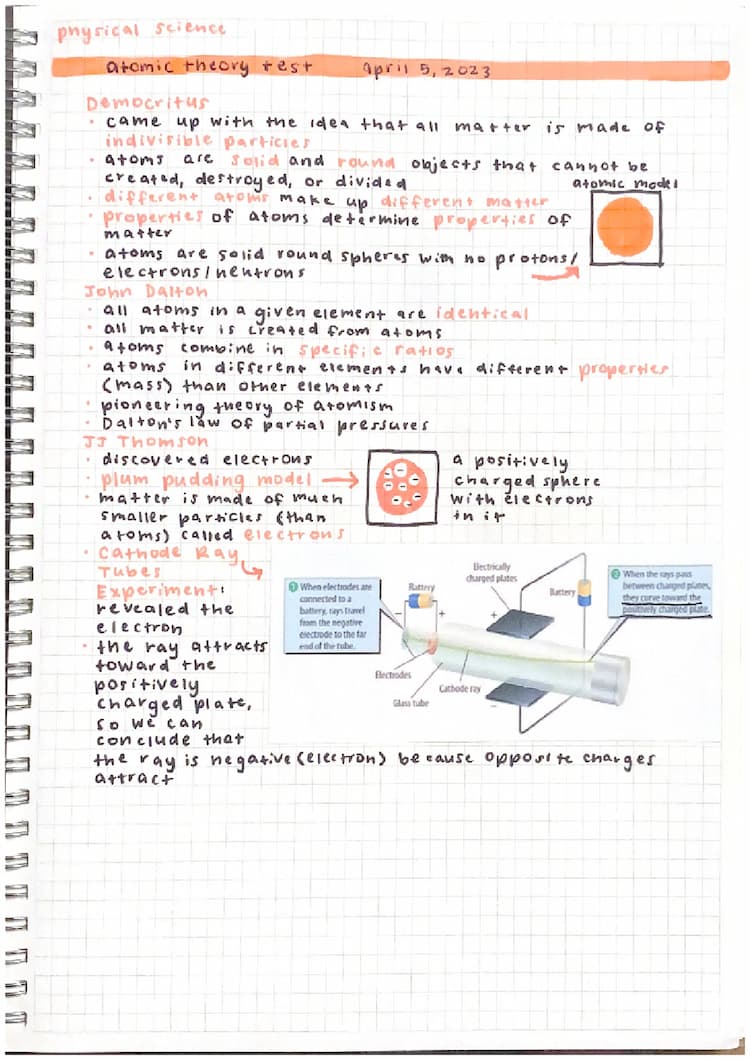 physical science
atomic theory test april 5, 2023
Democritus
· came up with the idea that all matter is made of
indivisible particles
· atoms are solid and round objects that cannot be
created, destroyed, or divided
atomic model
· different atoms make up different matter
· properties of atoms determine properties of
matter
· atoms are solid round spheres with no protons/
electrons/neutrons
John Dalton
· all atoms in a given element are identical
· all matter is created from atoms
· atoms combine in specific ratios
· atoms in different elements have different properties
(mass) than other elements
· pioneering theory of atomism
· Dalton's law of partial pressures
JJ Thomson
· discovered electrons
· plum pudding model →
· matter is made of much
smaller particles (than
atoms) called electrons
a positively
charged sphere
with electrons
in it
· Cathode Ray
Tubes
Experiment:
revealed the
electron
· the ray attracts
toward the
positively
charged plate,
so we can
conclude that
the ray is negative (electron) because opposite charges
attract
1 When electrodes are
connected to a
battery, rays travel
from the negative
electrode to the far
end of the tube.
Battery
− +
Electrically
charged plates
+
Battery
2 When the rays pass
between charged plates,
they curve toward the
positively charged plate.
Electrodes
Cathode ray
Glass tube
−